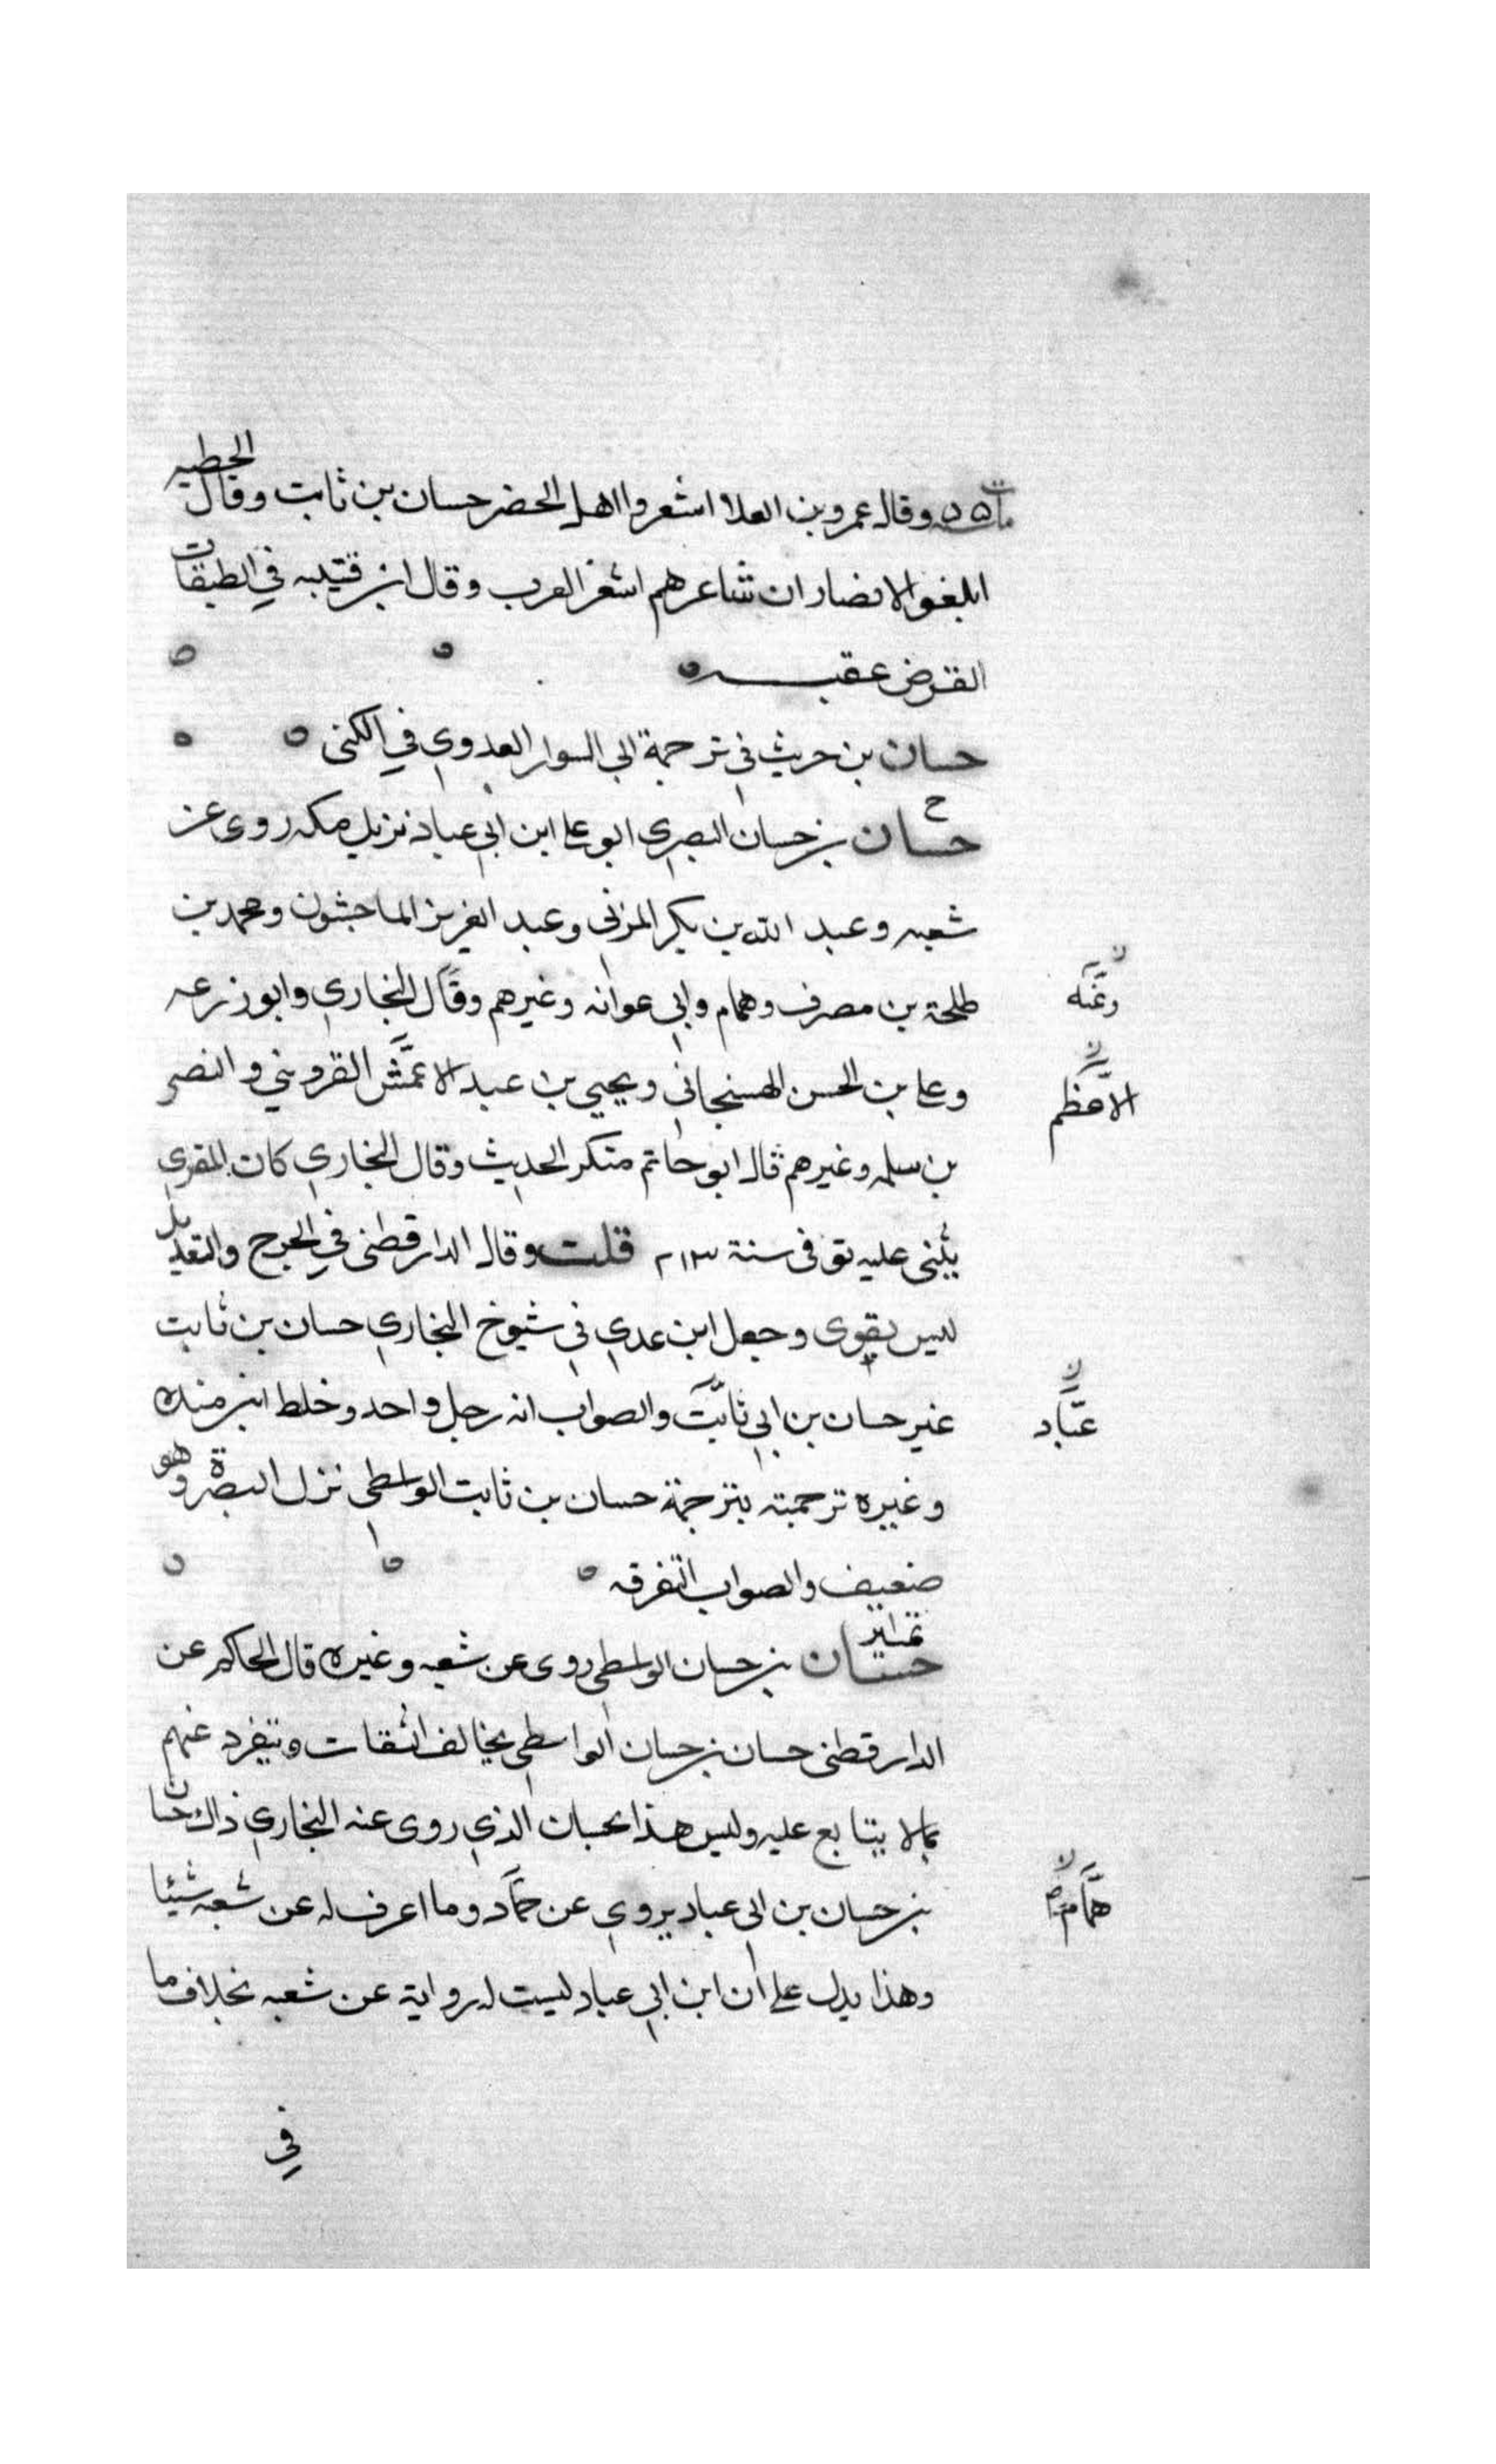 مات ٥٥ وقال عمرو بن العلا اشعروا اهل الحضر حسان بن ثابت وقال الحطيه
ابلغوا الانصار ان شاعرهم اشعر العرب وقال ابن قتيبه في الطبقات
القرض عقبه
حسان بن حريث في ترجمة ابي السوار العدوي في الكنى
خ
حسان بن حسان البصري ابو علي ابن ابي عباد نزيل مكه روى عن
شعبه وعبد الله بن بكر المزني وعبد العزيز الماجشون ومحمد بن
طلحة بن مصرف وهمام وابي عوانه وغيرهم وقال البخاري وابو زرعه
وعنه ن
وعلي بن الحسن الهسنجاني ويحيي بن عبد الاعمش القزويني والنصر
الاعظم ن
بن سلمه وغيرهم قال ابو حاتم منكر الحديث وقال البخاري كان المقري
يثني عليه توفى سنة ٢١٣ قلت وقال الدارقطني في الجرح والتعديل
ليس بقوى وجعل ابن عدي في شيوخ البخاري حسان بن ثابت
غير حسان بن ابي ثابت والصواب انه رجل واحد وخلط ابن منده
عباد ن
وغيره ترجمته بترجمة حسان بن ثابت الواسطي نزل البصرة وهو
ضعيف والصواب التفرقه
تمييز
حسان بن حسان الواسطي روى عن شعبه وغيره قال الحاكم عن
الدارقطني حسان بن حسان الواسطي يخالف الثقات وينفرد عنهم
بمالا يتابع عليه وليس هذا بحسان الذي روى عنه البخاري ذاك حسان
بن حسان بن ابي عباد يروي عن حماد وما اعرف له عن شعبه شيئا
همام ن
وهذا يدل على ان ابن ابي عباد ليست له رواية عن شعبه بخلاف ما
في